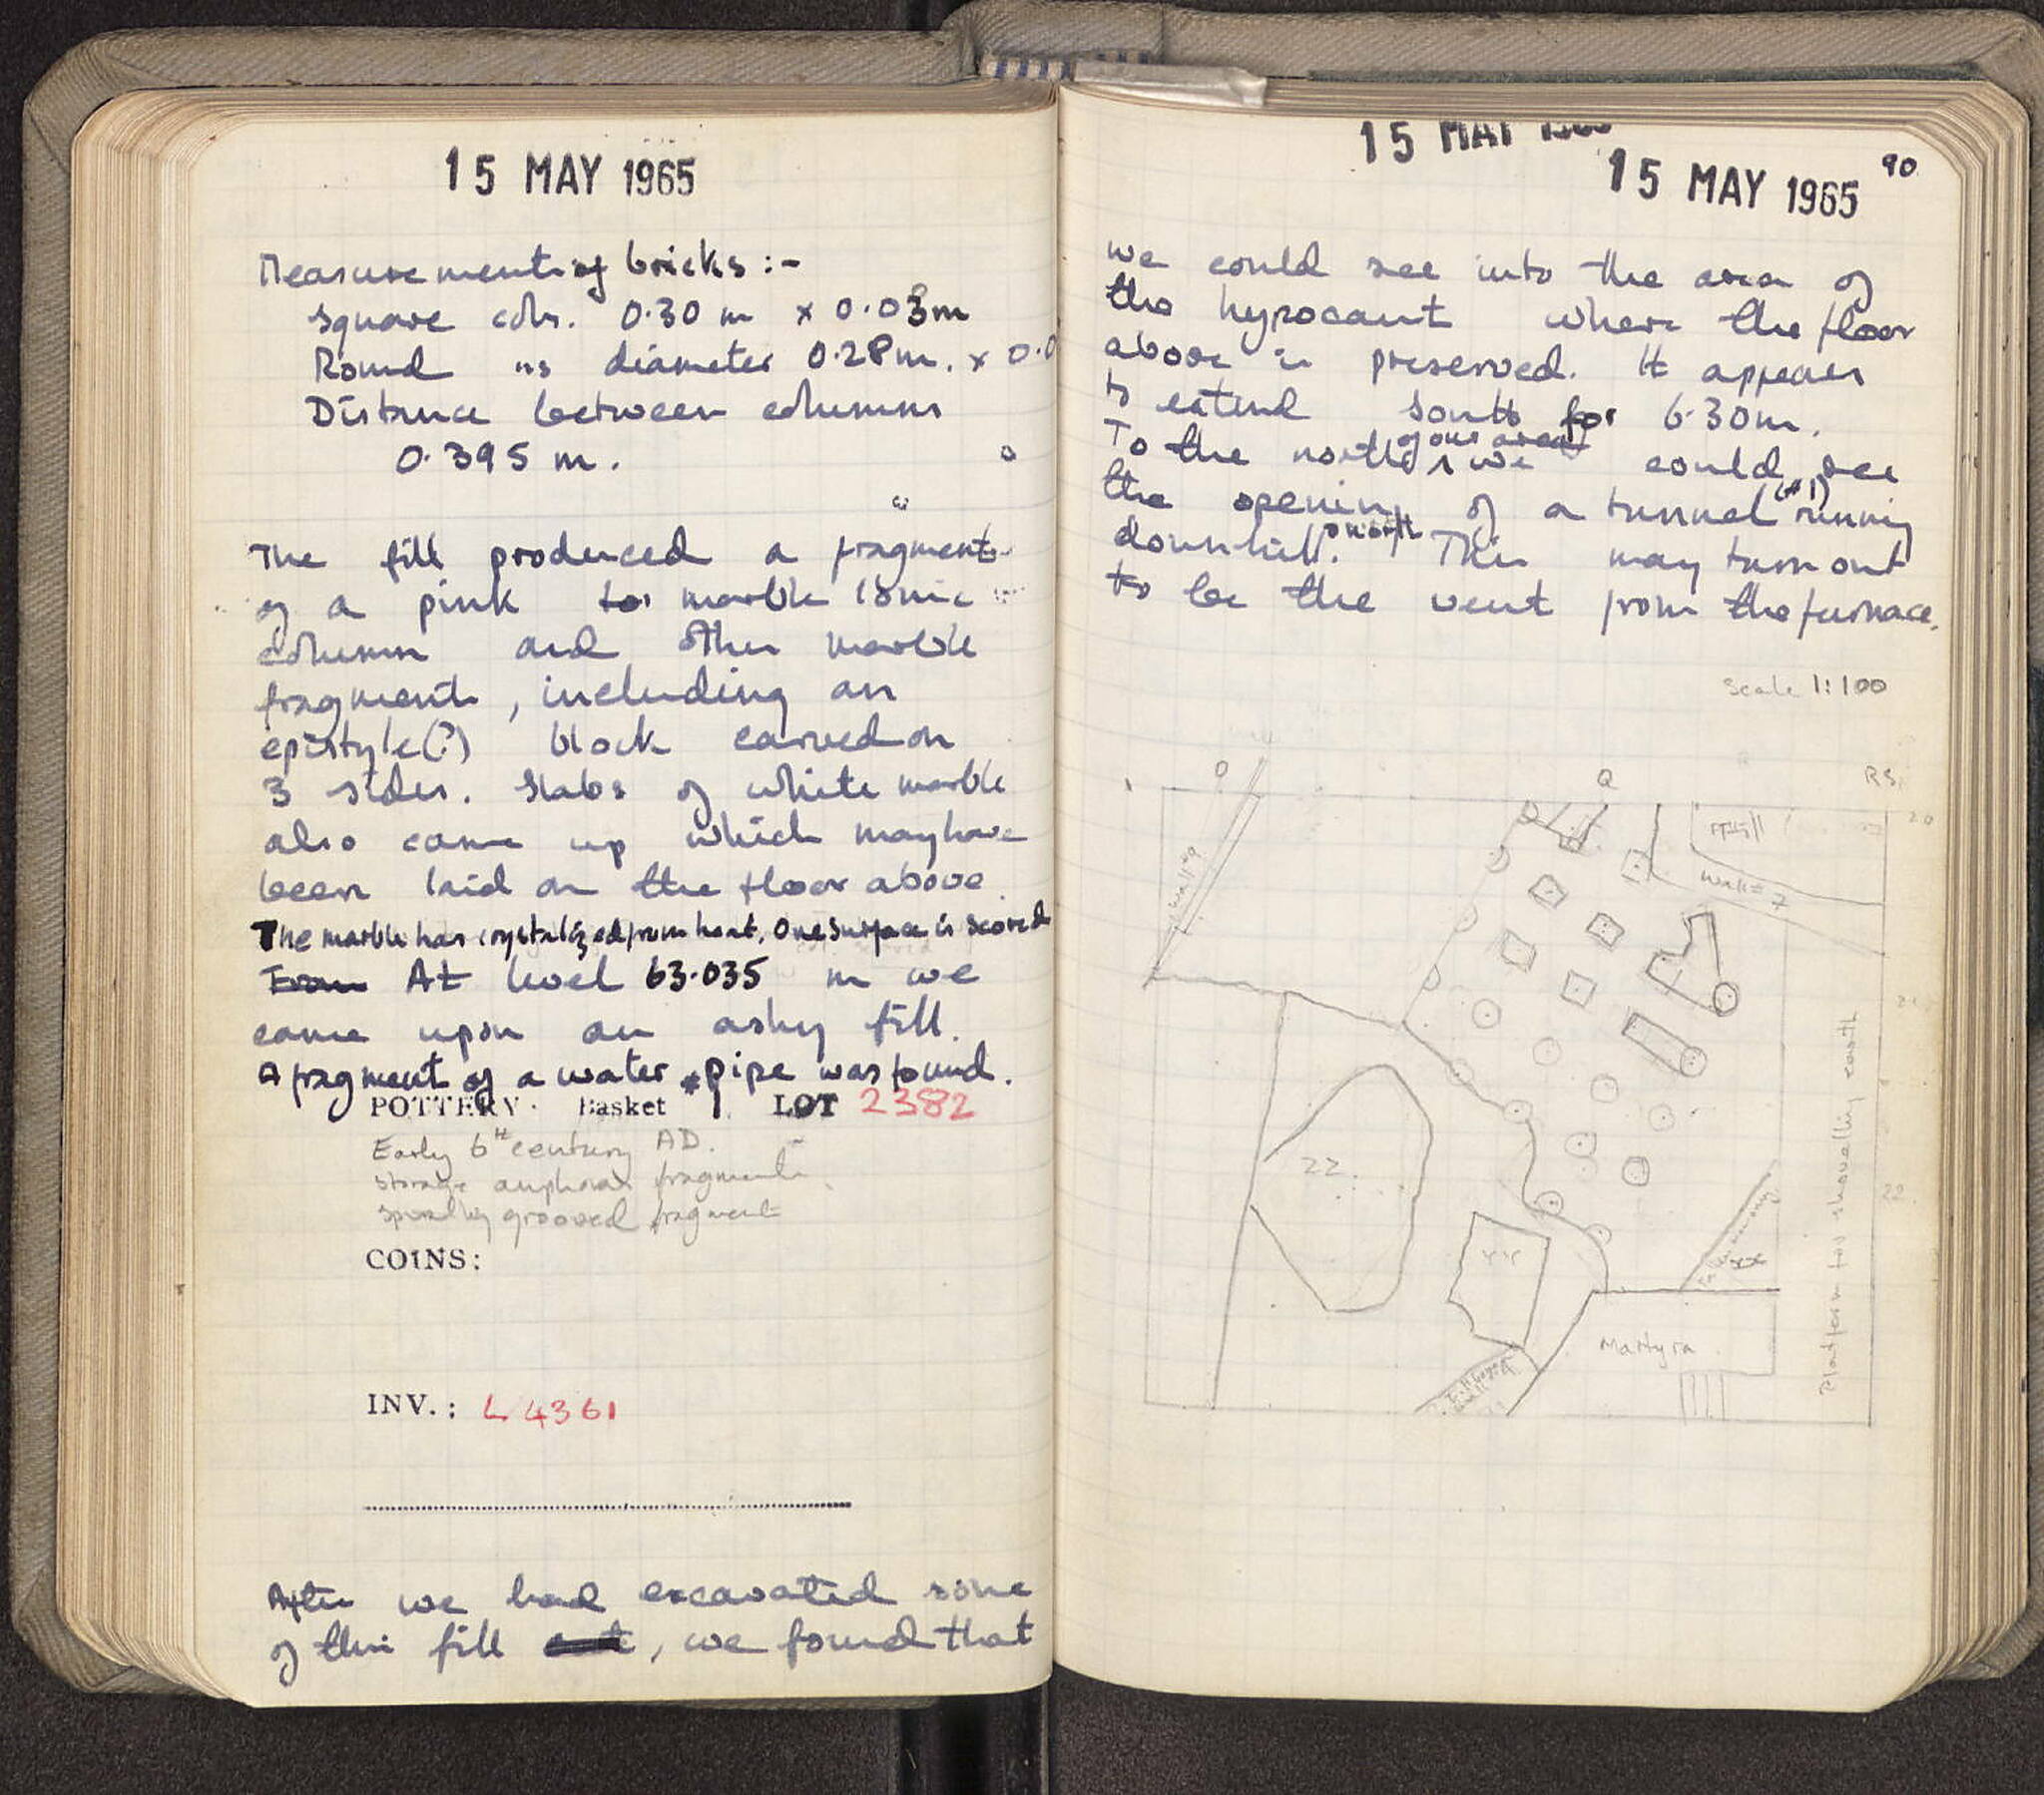 15 MAY 1965
Measurements of bricks :-
Square cols. 0.30 m x 0.03m
Round " diameter 0.28m. x 0.0
Distance between columns
0.395 m.
The fill produced a fragment
of a pink marble Ionic
column and other marble
fragments, including an
epistyle(?) block carved on
3 sides. Slabs of white marble
also came up which may have
been laid on the floor above.
The marble has crystalized from heat. One surface is scored
From At level 63.035 m we
came upon an ashy fill.
A fragment of a water pipe was found.
POTTERY. Basket 1 LOT 2382
Early 6th century AD.
storage amphora fragments
spirally grooved fragment
COINS:
INV.: L 4361
After we had excavated some
of this fill, we found that
15 MAY
15 MAY 1965
90
we could see into the area of
the hypocaust where the floor
above is preserved. It appears
to extend south for 6.30m.
To the north of our area we could see
the opening of a tunnel (#1) running
downhill north. This may turn out
to be the vent from the furnace.
Scale 1:100
Q
RS
20
wall #9
Fill
Wall # 7
21
22.
22
YY
XX
Martyra
Platform for shovelling earth